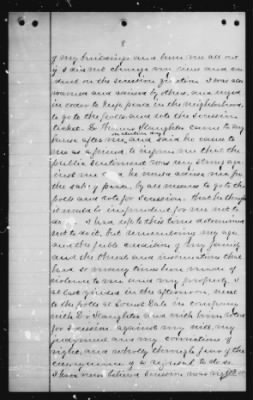 8
of my buildings and burn me all out
if I did not change my views and con
duct on the secession question. I was also
warned and advised by others, and urged
in order to keep peace in the neighborhood,
to go to the polls and vote the secession
ticket. Dr Slaughter came to my
house on election day after me, and said he came to
me as a friend to inform me that the
public sentiment was very strong aga
inst me and he must advise me for
the sake of peace, by all means to go to the
polls and vote for secession. that he thought
it would be imprudent for me not to
do so. I had up to this time determined
not to do it, but remembering my age
and the feeble condition of my family
and the threats and insinuations that
had so many times been made of
violence to me and my property, I
at last yielded in the afternoon, went
to the polls at Locust Dale in company
with Dr Slaughter and with him voted
for secession against my will, my
judgment and my convictions of
right, and wholly through fear of the
consequences of a refusal to do so.
I have never believed secession was right